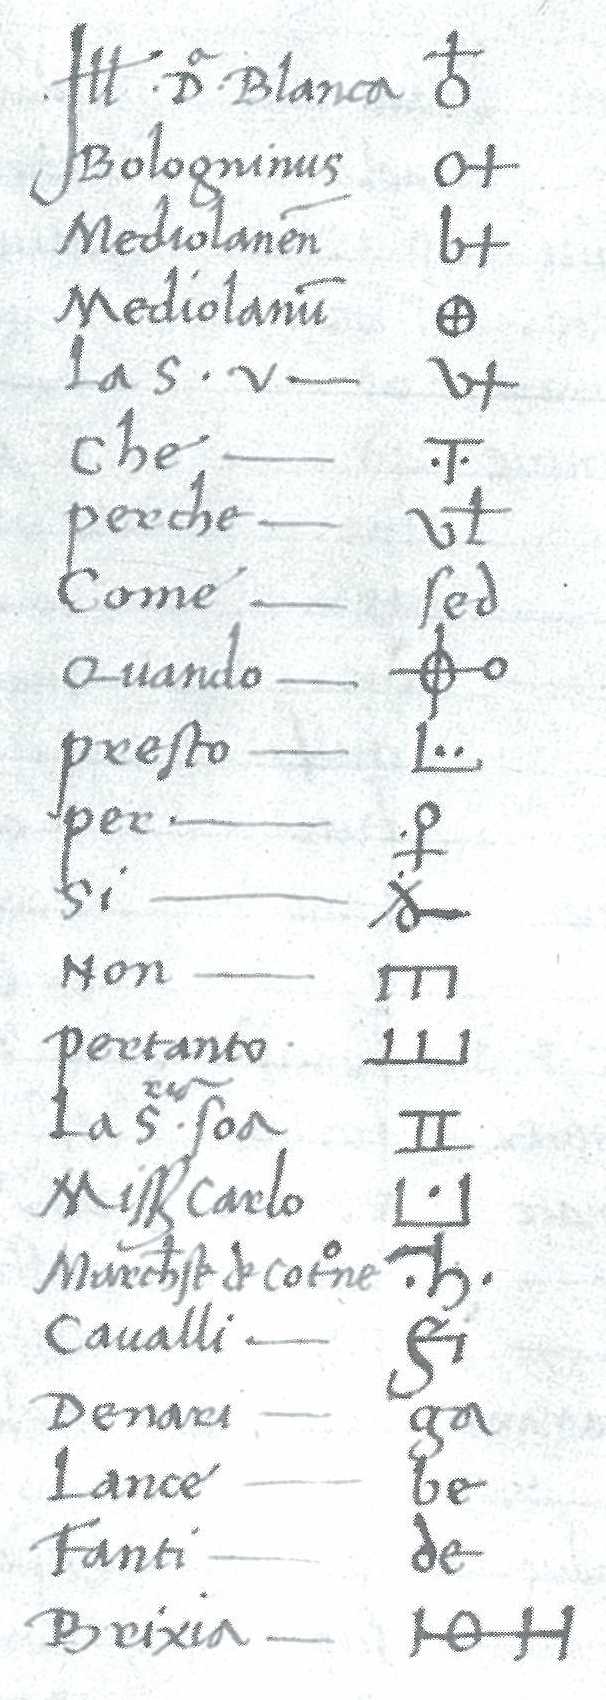 Ill. Dª. Blanca ♁
Bologninus o+
Mediolanēn b+
Mediolanū ⊕
La S. v — v+
Che — .T.
perche — vt
Come — sed
Quando —
presto — L..
per. — .♀
Si —
Non —
pertanto
La S. soa II
Miss Carlo
March. de Cotne .ħ.
Caualli —
Denari — ga
Lance — be
Fanti — de
Brixia —